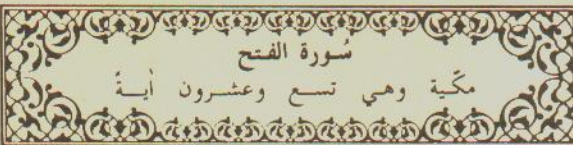 سُورة الفتح
مكّية وهي تسع وعشرون أيـةً